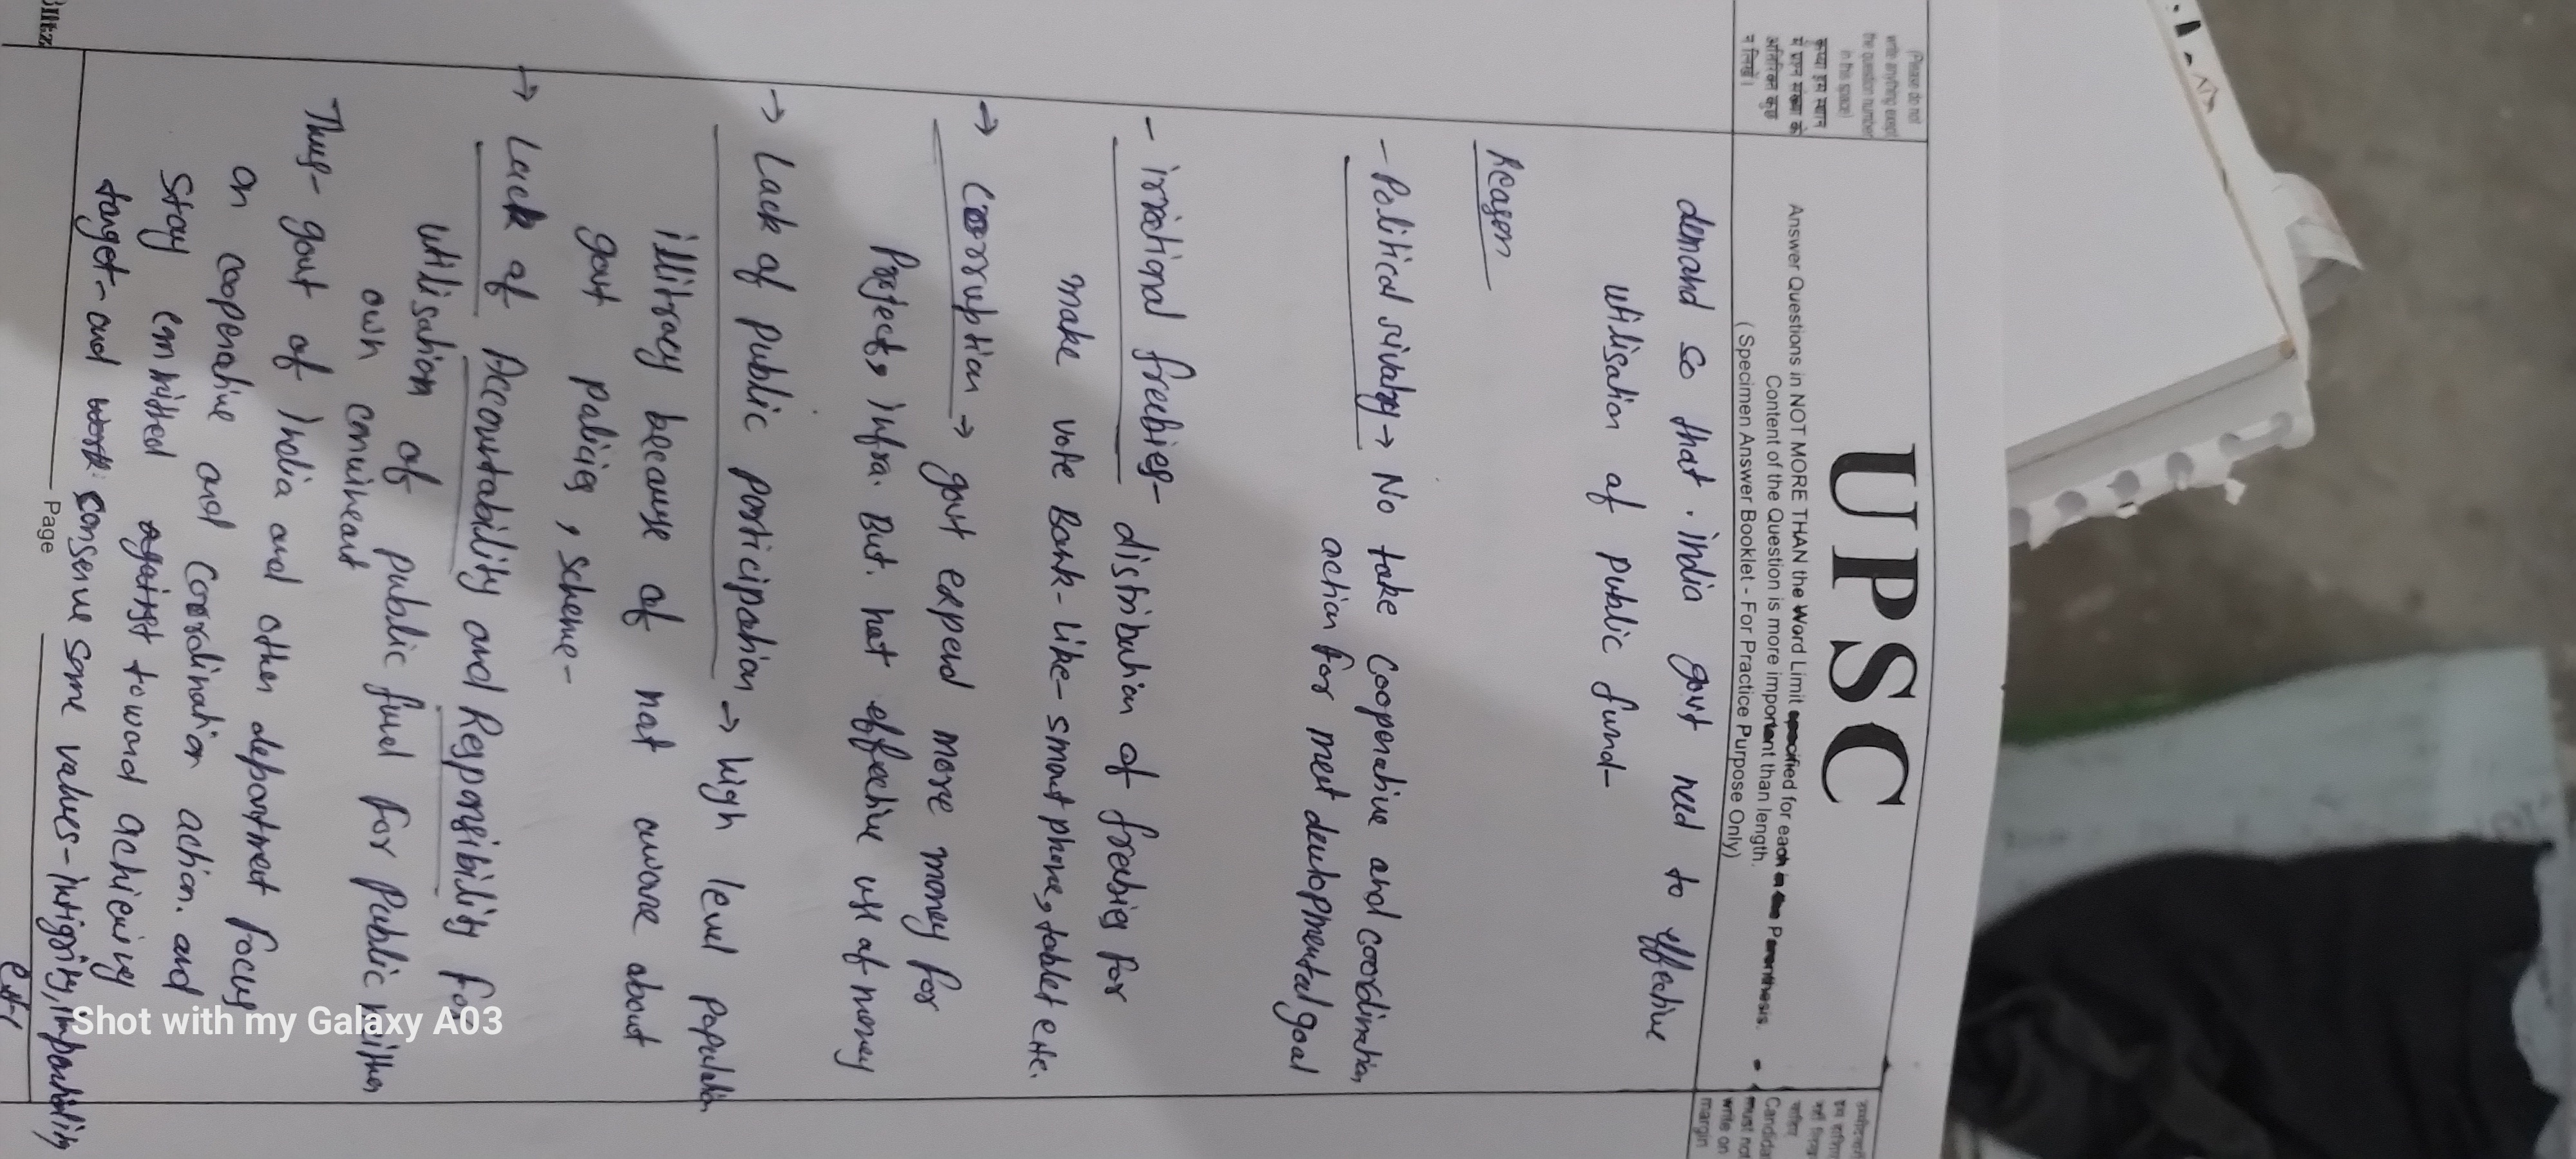 (Please do not
write anything except
the question number
in this space)
कृपया इस स्थान
में प्रश्न संख्या के
अतिरिक्त कुछ
न लिखें।
UPSC
Answer Questions in NOT MORE THAN the Word Limit specified for each in the Parenthesis.
Content of the Question is more important than length.
(Specimen Answer Booklet - For Practice Purpose Only)
Candidat
must not
write on
margin
demand so that india govt need to effective
utilisation of public fund-
Reason
- Political rivalry → No take cooperative and coordination
action for meet developmental goal
- irrational freebies - distribution of freebies for
make vote Bank - Like - smart phone, tablet etc.
→ Corruption → govt expend more money for
Projects, infra. But not effective use of money
→ Lack of public participation → high level population
illitracy because of not aware about
govt policies, scheme-
→ Lack of Accountability and Responsibility for
utilisation of public fund for public neither
own
Thus- govt of India and other department focus
on cooperative and coordination action. and
stay committed against toward achieving
target- and work conserve some values - intigrity, impartiality
etc
Page
Shot with my Galaxy A03